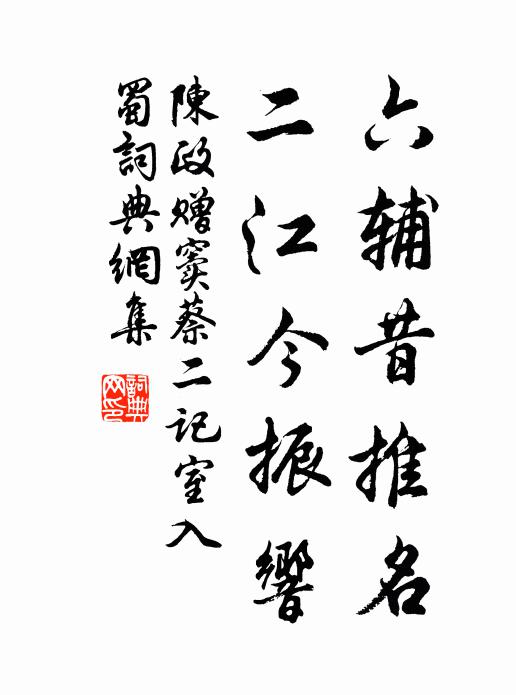 六辅昔推名
二江今振響
陳政赠窦蔡二记室入
蜀詞典網集
詞典网印